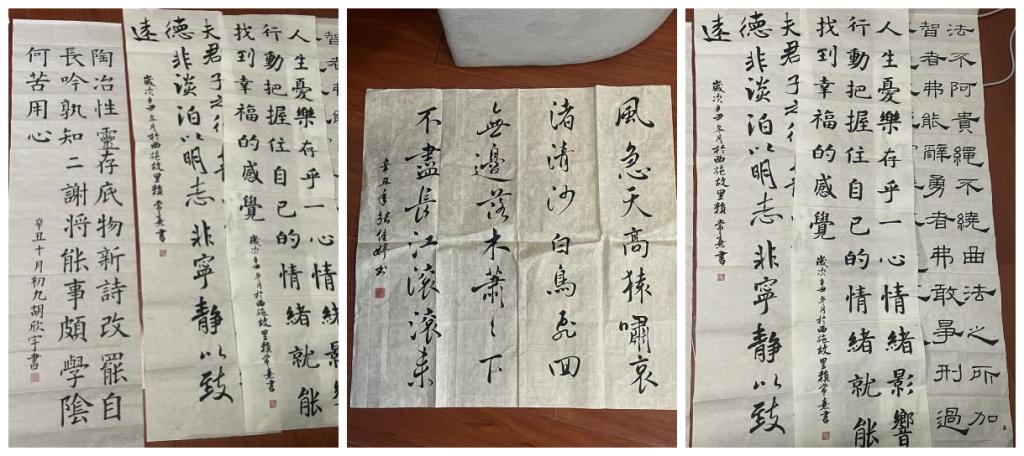 智者弗能
人生憂樂存乎一心情緒影
行動把握住自己的情緒就能
找到幸福的感覺
歲次辛丑冬月於西施故里賴常熹書
夫君子之行
德非淡泊以明志非寧静以致
遠
歲次辛丑冬月於西施故里賴常熹書
陶冶性靈存底物新詩改罷自
長吟孰知二謝將能事頗學陰
何苦用心
辛丑十月初九胡欣宇書
風急天高猿嘯哀
渚清沙白鳥飛回
無邊落木蕭々下
不盡長江滾滾来
辛丑年張佳婷书
法不阿貴繩不繞曲法之所加
智者弗能辭勇者弗敢爭刑過
人生憂樂存乎一心情緒影響
行動把握住自己的情緒就能
找到幸福的感覺
歲次辛丑冬月於西施故里賴常熹書
夫君子之行
德非淡泊以明志非寧静以致
遠
歲次辛丑冬月於西施故里賴常熹書